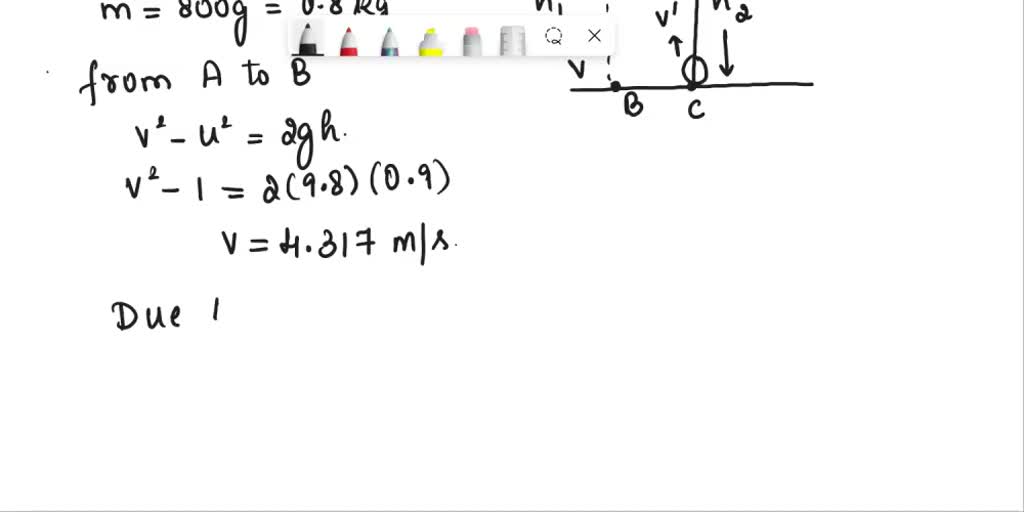 m = 800g = 0.8 kg
h₁
v'
h₂
V
B
C
from A to B
v² - u² = 2gh.
v² - 1 = 2(9.8)(0.9)
v = 4.317 m/s.
Due